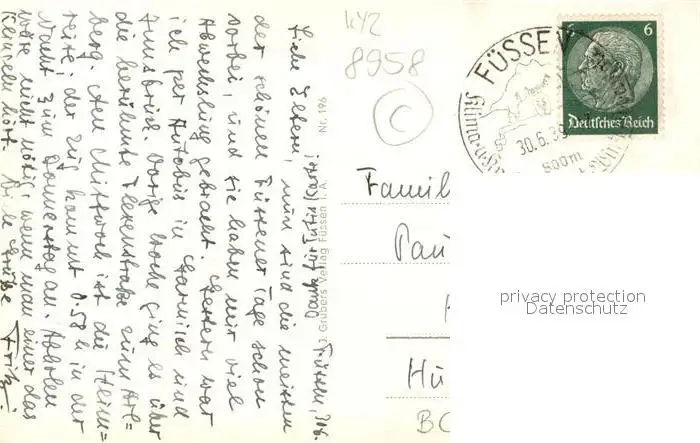 Füssen, 30.6.
Dank für Eure Karte!
Liebe Eltern, nun sind die meisten
der schönen Füssener Tage schon
vorbei, und sie haben mir viel
Abwechslung gebracht. Gestern war
ich per Autobus in Garmisch und
Innsbruck. Vorige Woche ging es über
die berühmte Flexenstraße zum Arl=
berg. Am Mittwoch ist die Heim=
reise, der Zug kommt 0.58 h in der
Nacht zum Donnerstag an. Abholen
wäre nicht nötig, wenn man einer das
Klingeln hört. Grüße Fritz.
J. Grubers Verlag Füssen i. A. Nr. 196
KYZ
8958
C
FÜSSEN
30.6.39
800m
6
Deutsches Reich
Famil
Pau
Hü
BC
privacy protection
Datenschutz